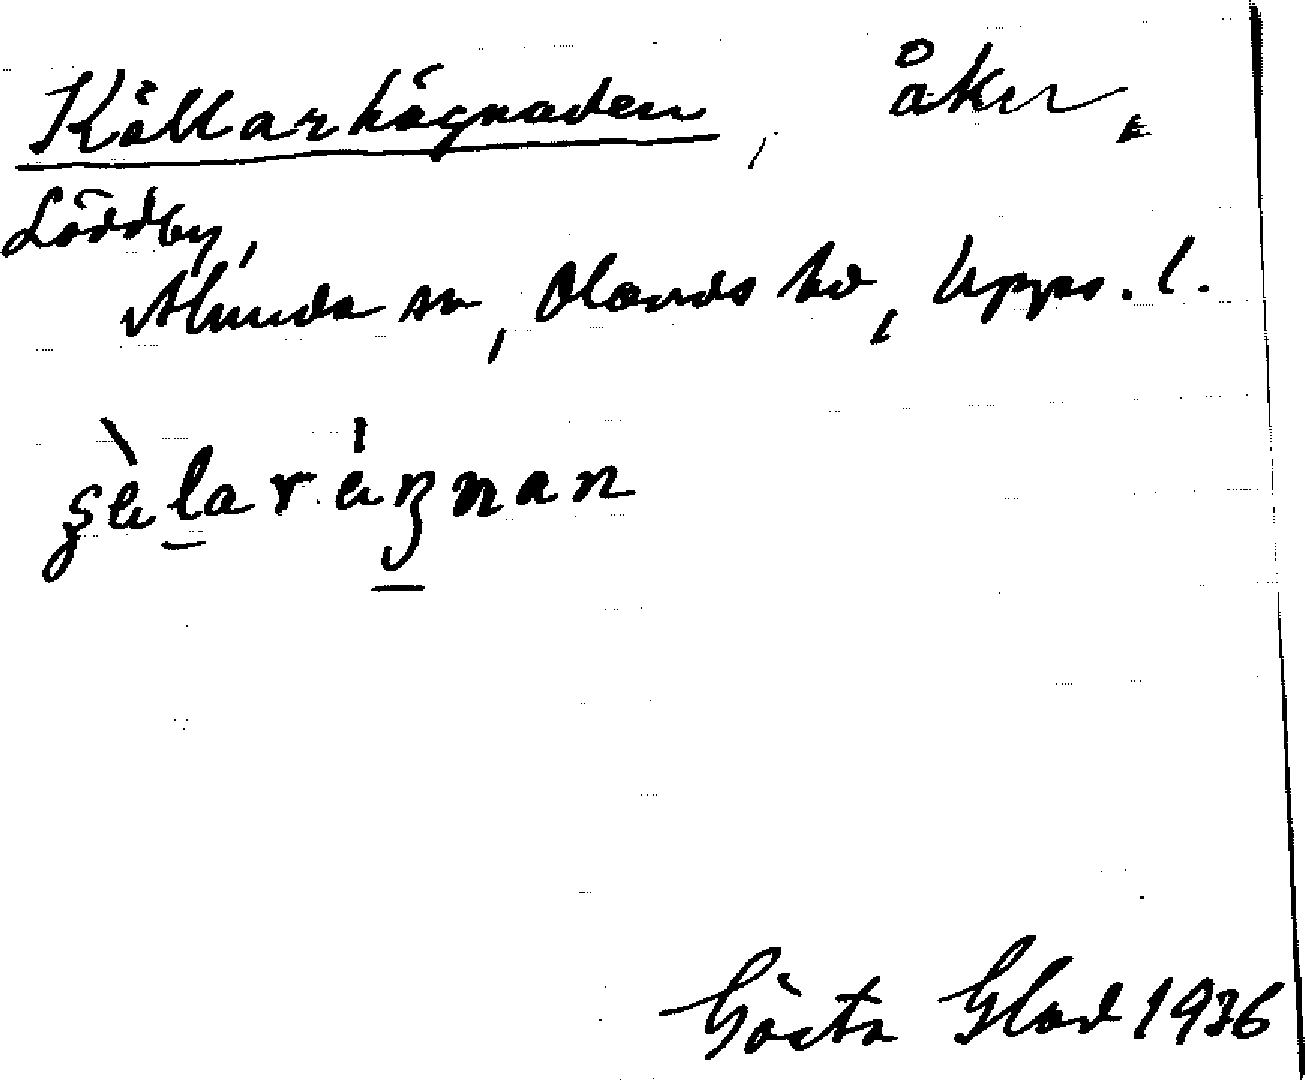 Källarhägnaden, åker,
Löddby,
Alunda sn, Olands hd, Upps. l.
Gösta Glad 1936